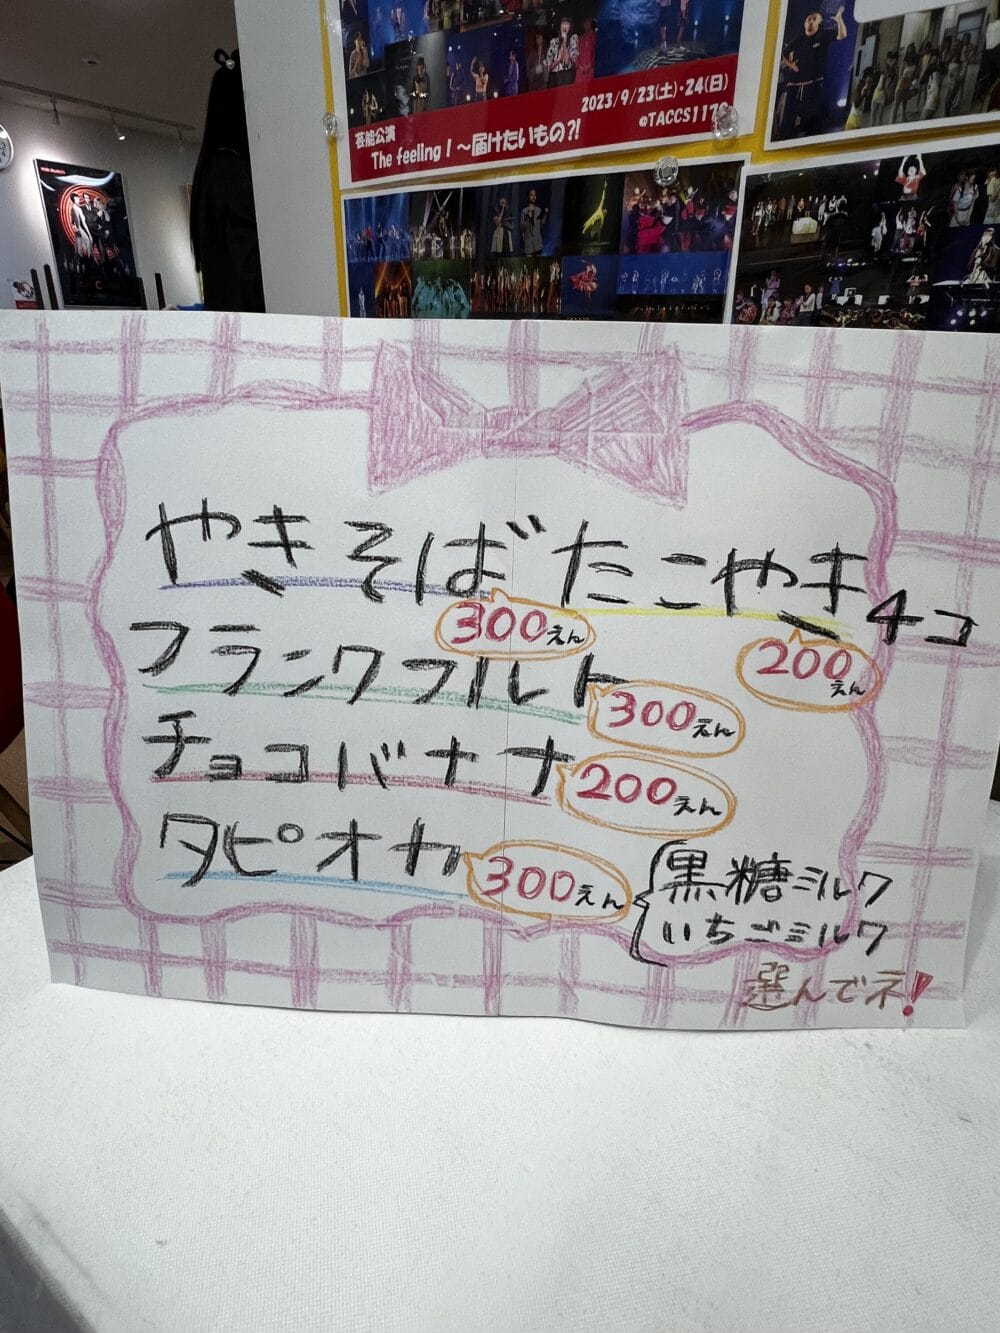 2023/9/23(土)・24(日)
@TACCS117
芸能公演
The feeling！～届けたいもの?!
やきそば 300えん
たこやき 4コ 200えん
フランクフルト 300えん
チョコバナナ 200えん
タピオカ 300えん
黒糖ミルク
いちごミルク
選んでネ!